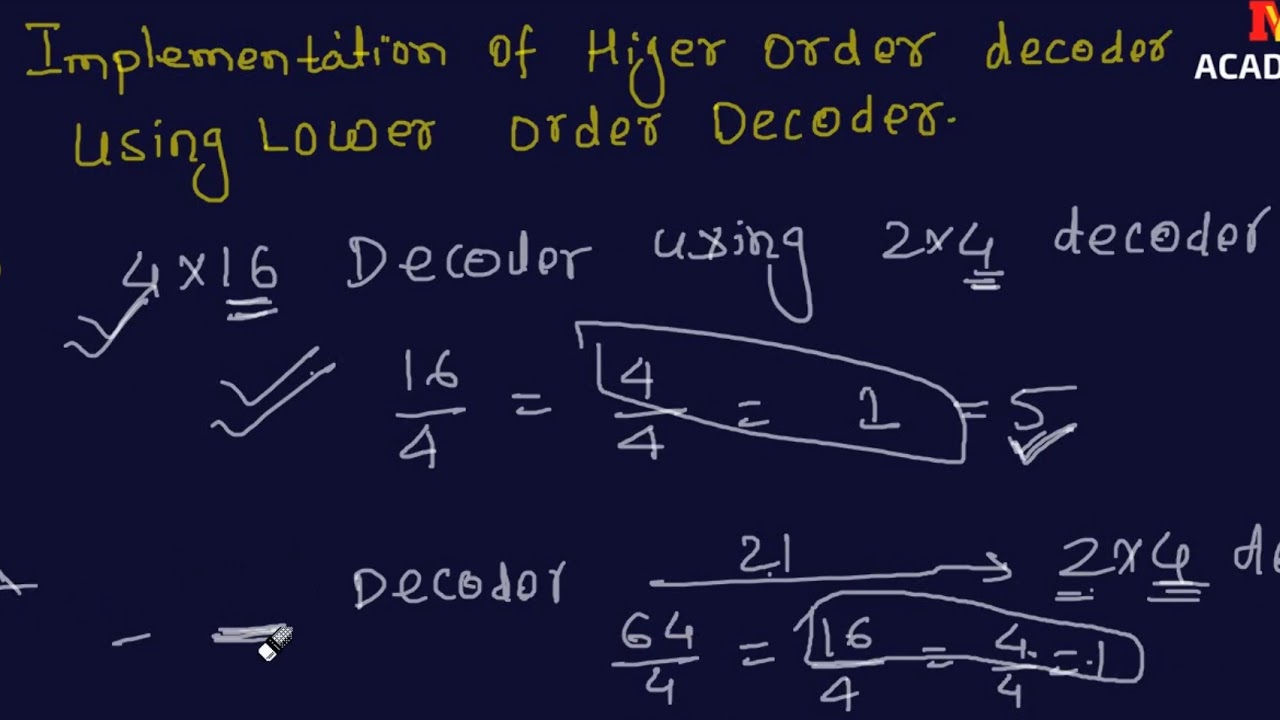 Implementation of Higer order decoder
ACAD
using Lower order Decoder.
4×16 Decoder using 2×4 decoder
16/4 = 4/4 = 1 = 5
Decoder 21 → 2×4 de
64/4 = 16/4 = 4/4 = 1